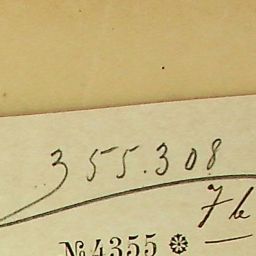 355.308
7 le
№ 4355 ❉